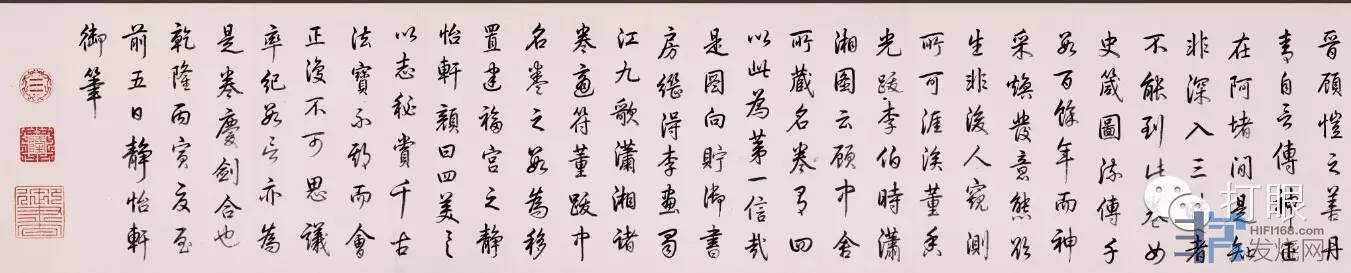 晉顧愷之善丹
青自言傳神正
在阿堵間是知
非深入三者
不能到此卷女
史箴圖流傳千
數百餘年而神
采煥發意態欲
生非後人窺測
所可涯涘董香
光跋李伯時瀟
湘圖云顧中舍
所藏名卷有四
以此為第一信哉
是圖向貯御書
房繼得李畫蜀
江九歌瀟湘諸
卷適符董跋中
名卷之數為移
置建福宮之靜
怡軒顏曰四美具
以志秘賞千古
法寶不期而會
正復不可思議
率紀數言亦為
是卷慶劍合也
乾隆丙寅夏至
前五日靜怡軒
御筆
打眼
HIFI168.com
发烧网